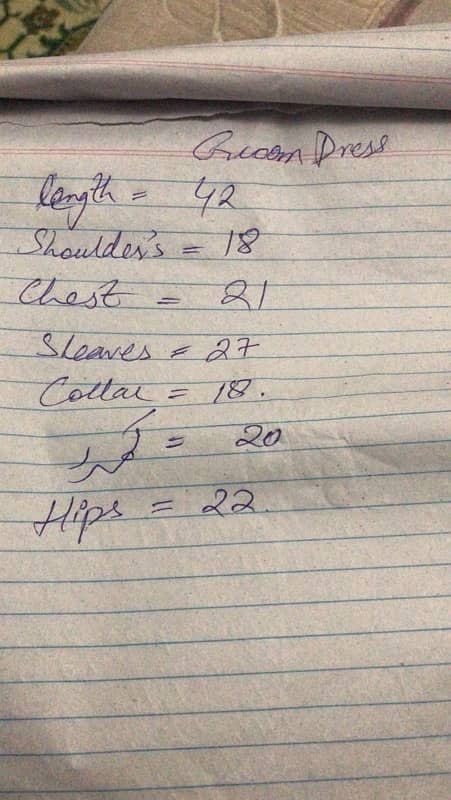 Groom Dress
length = 42
Shoulder's = 18
Chest = 21
Sleaves = 27
Collar = 18.
کمر = 20
Hips = 22.